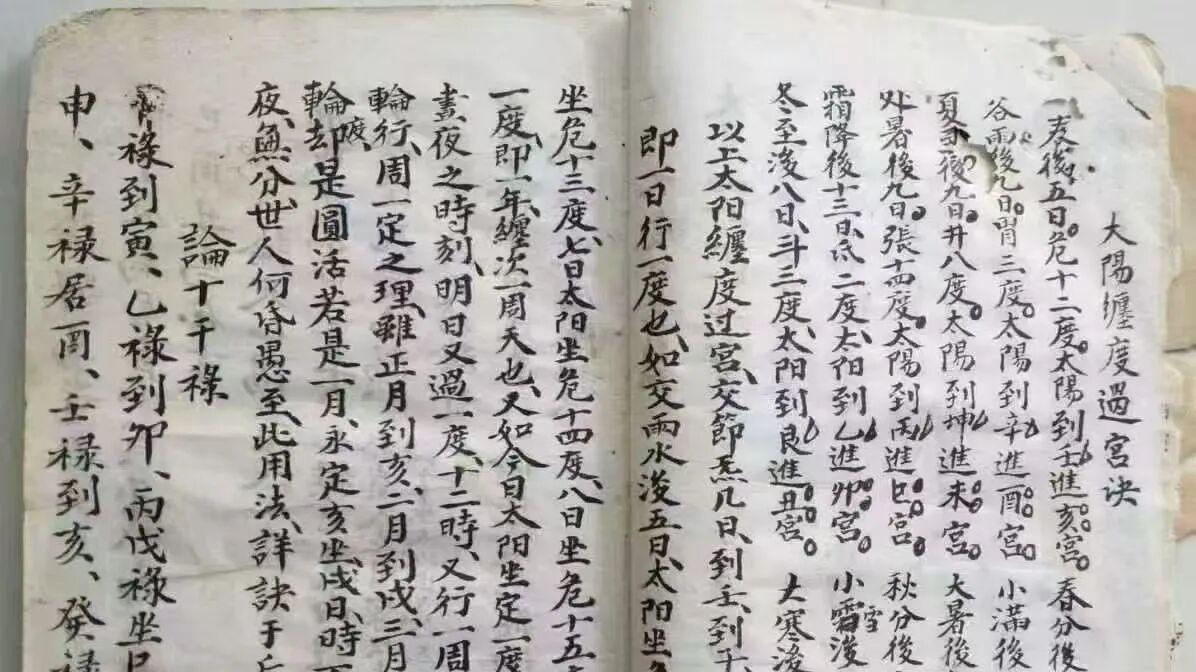 太陽纏度過宮诀
春後五日。危十二度。太陽到壬進亥宮。 春分後
谷雨後九日。胃三度。太陽到辛進酉宮。 小滿後
夏至後九日。井八度。太陽到坤進未宮。 大暑後
处暑後九日。張十四度。太陽到丙進巳宮。 秋分後
霜降後十三日、氐二度、太阳到乙進卯宮。 小雪後
冬至後八日、斗三度、太阳到艮進丑宮。 大寒後
以上太阳纏度过宮、交節炁几日、到壬、到干、
即一日行一度也、如交雨水後五日、太阳坐危
坐危十三度、七日太阳坐危十四度、八日坐危十五度
一度、即一年、纏次一周天也、又如今日太阳坐定一度
晝夜之時刻、明日又過一度、十二時、又行一周
輪行、周一定之理、雖正月到亥、二月到戍、三月
輪渡、却是圓活若是一月、永定亥坐、戍日、時
夜、無分、世人何昏愚至、此用法、詳訣于
論十干禄
禄到寅、乙禄到卯、丙戊禄坐巳
申、辛禄居酉、壬禄到亥、癸禄